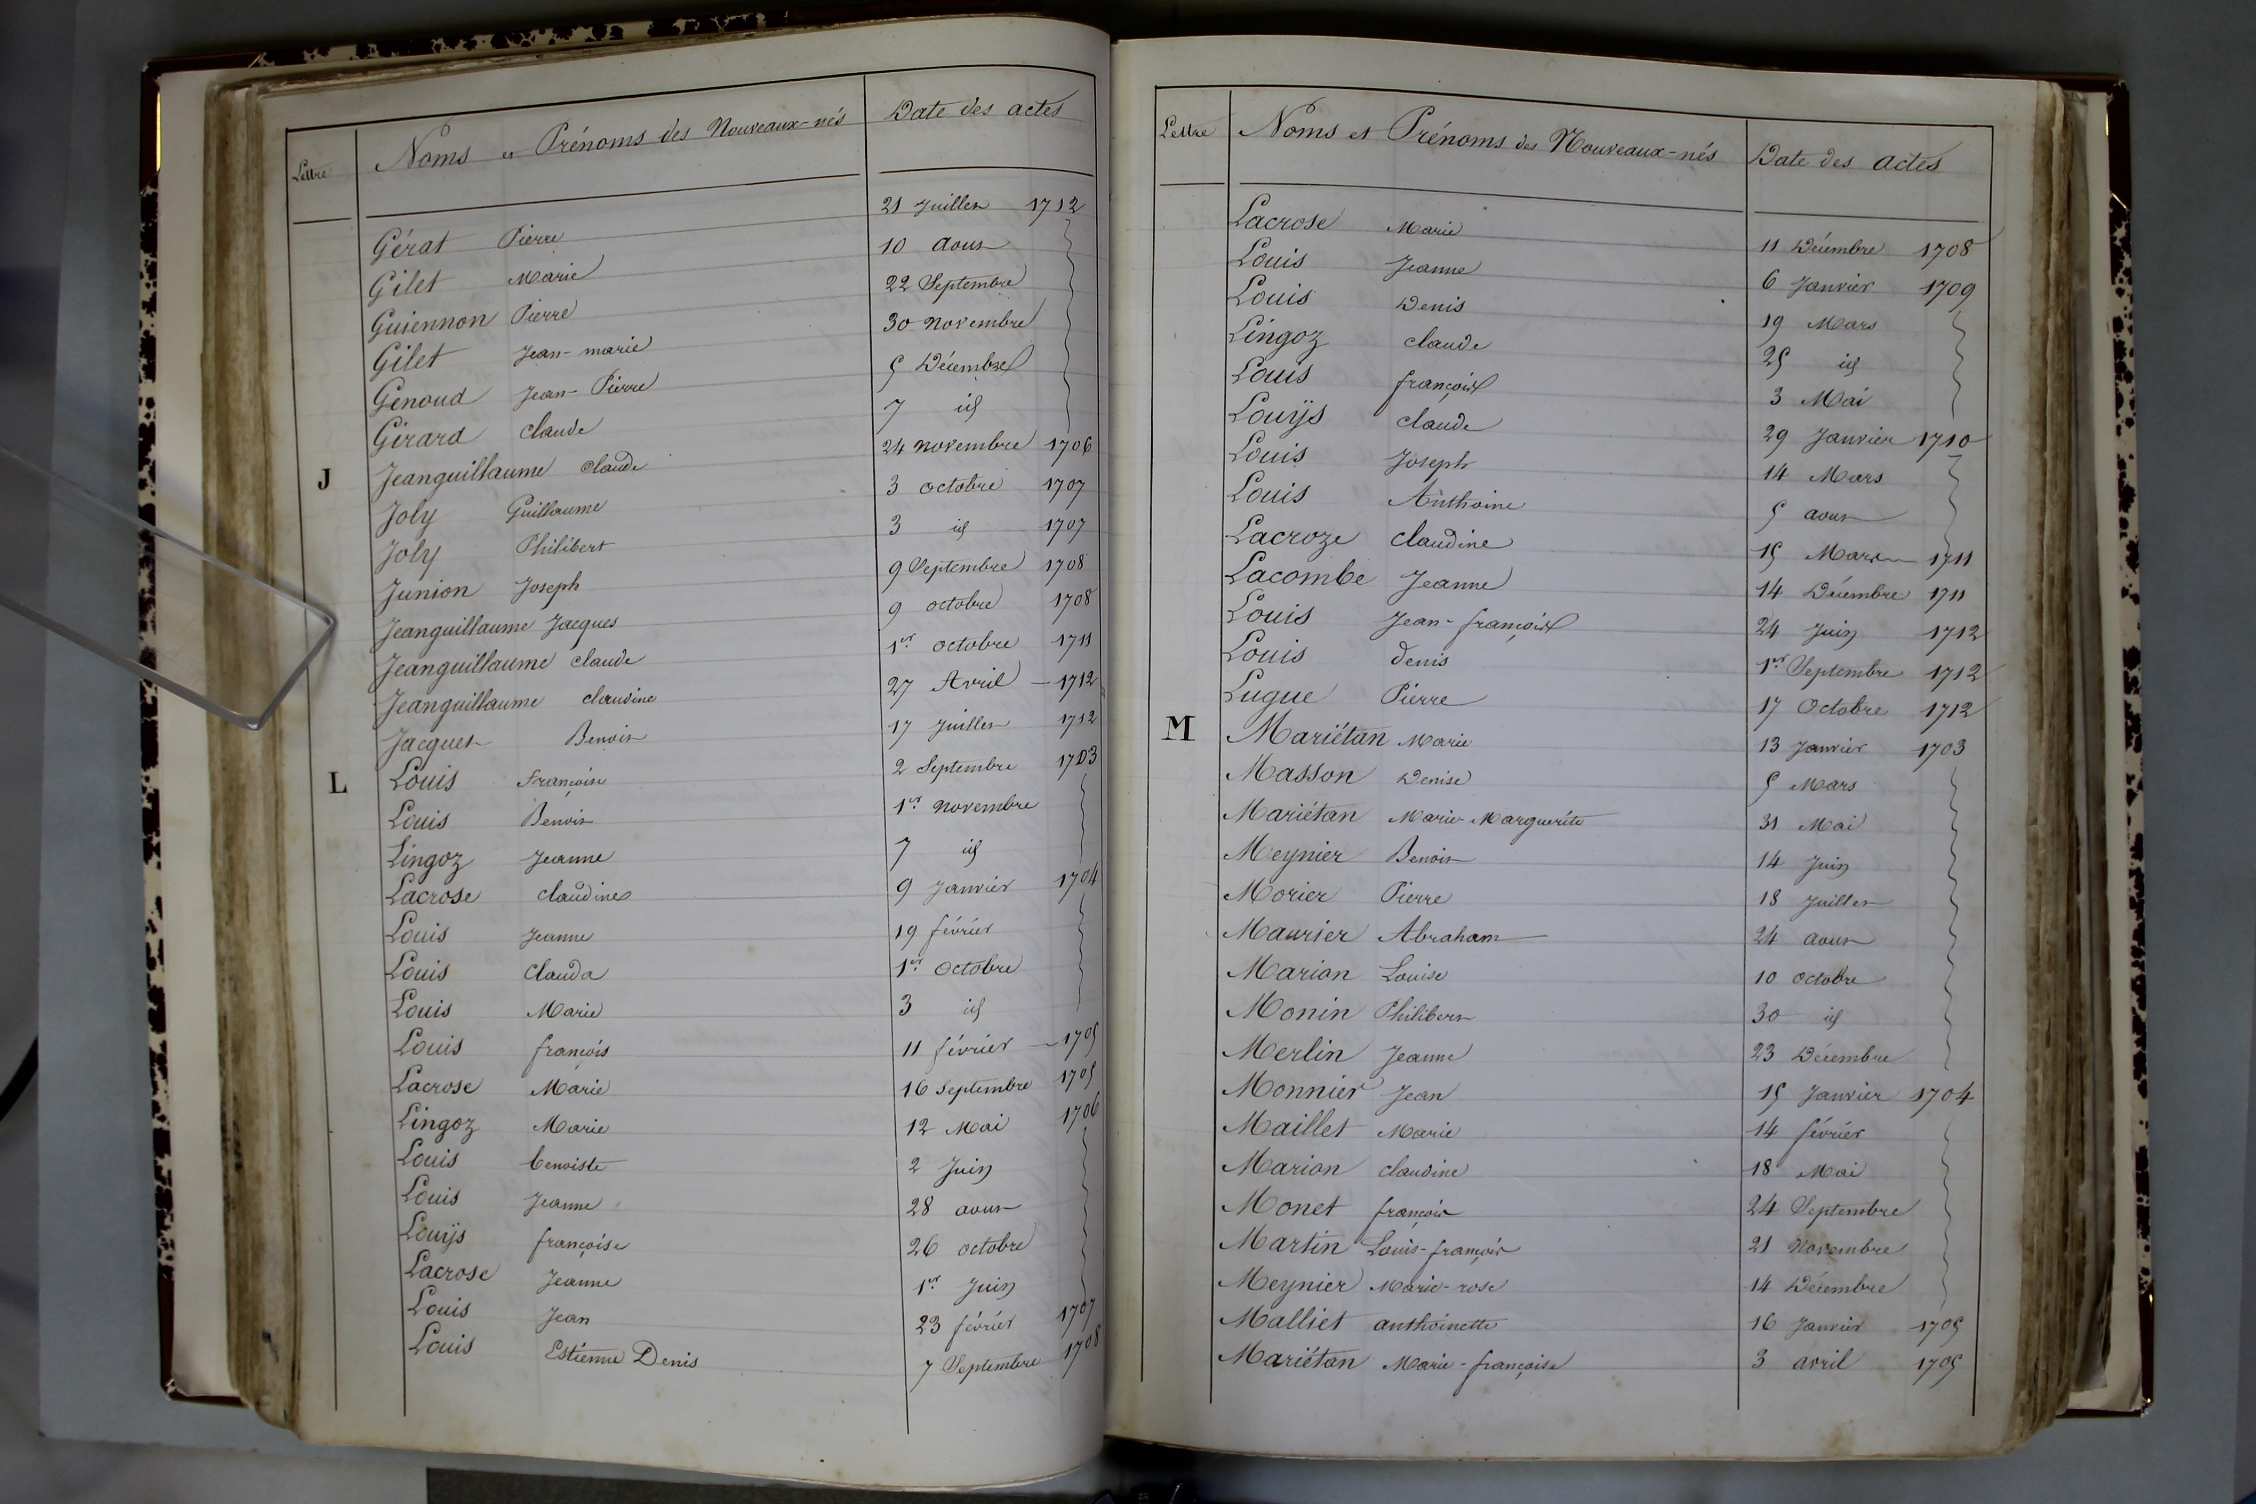 Lettre Noms et Prénoms des Nouveaux-nés Date des actes
Gérat Pierre 21 Juillet 1712
Gilet Marie 10 aout
Guiennon Pierre 22 Septembre
Gilet Jean-marie 30 novembre
Genoud Jean-Pierre 5 Décembre
Girard claude 7 id
J Jeanguillaume claude 24 novembre 1706
Joly Guillaume 3 octobre 1707
Joly Philibert 3 id 1707
Junion Joseph 9 Septembre 1708
Jeanguillaume Jacques 9 octobre 1708
Jeanguillaume claude 1er octobre 1711
Jeanguillaume claudine 27 Avril 1712
Jacquet Benoit 17 Juillet 1712
L Louis Françoise 2 Septembre 1703
Louis Benoit 1er novembre
Lingoz Jeanne 7 id
Lacrose claudine 9 Janvier 1704
Louis Jeanne 19 février
Louis Clauda 1er Octobre
Louis Marie 3 id
Louis françois 11 février 1705
Lacrose Marie 16 Septembre 1705
Lingoz Marie 12 Mai 1706
Louis benoiste 2 Juin
Louis Jeanne 28 aout
Louys françoise 26 octobre
Lacrose Jeanne 1er Juin
Louis Jean 23 février 1707
Louis Estienne Denis 7 Septembre 1708
Lettre Noms et Prénoms des Nouveaux-nés Date des actes
Lacrose Marie 11 Décembre 1708
Louis Jeanne 6 Janvier 1709
Louis Denis 19 Mars
Lingoz claude 25 id
Louis françois 3 Mai
Louys claude 29 Janvier 1710
Louis Joseph 14 Mars
Louis Anthoine 5 aout
Lacroze claudine 15 Mars 1711
Lacombe Jeanne 14 Décembre 1711
Louis Jean-françois 24 Juin 1712
Louis denis 1er Septembre 1712
Lugue Pierre 17 Octobre 1712
M Mariétan Marie 13 Janvier 1703
Masson Denise 5 Mars
Mariétan Marie-Marguerite 31 Mai
Meynier Benoit 14 Juin
Morier Pierre 18 Juillet
Maurier Abraham 24 aout
Marion Louise 10 octobre
Monin Philibert 30 id
Merlin Jeanne 23 Décembre
Monnier Jean 15 Janvier 1704
Maillet Marie 14 février
Marion claudine 18 Mai
Monet françois 24 Septembre
Martin Louis-françois 21 novembre
Meynier Marie-rose 14 Décembre
Malliet anthoinette 16 Janvier 1705
Mariétan Marie-françoise 3 avril 1705